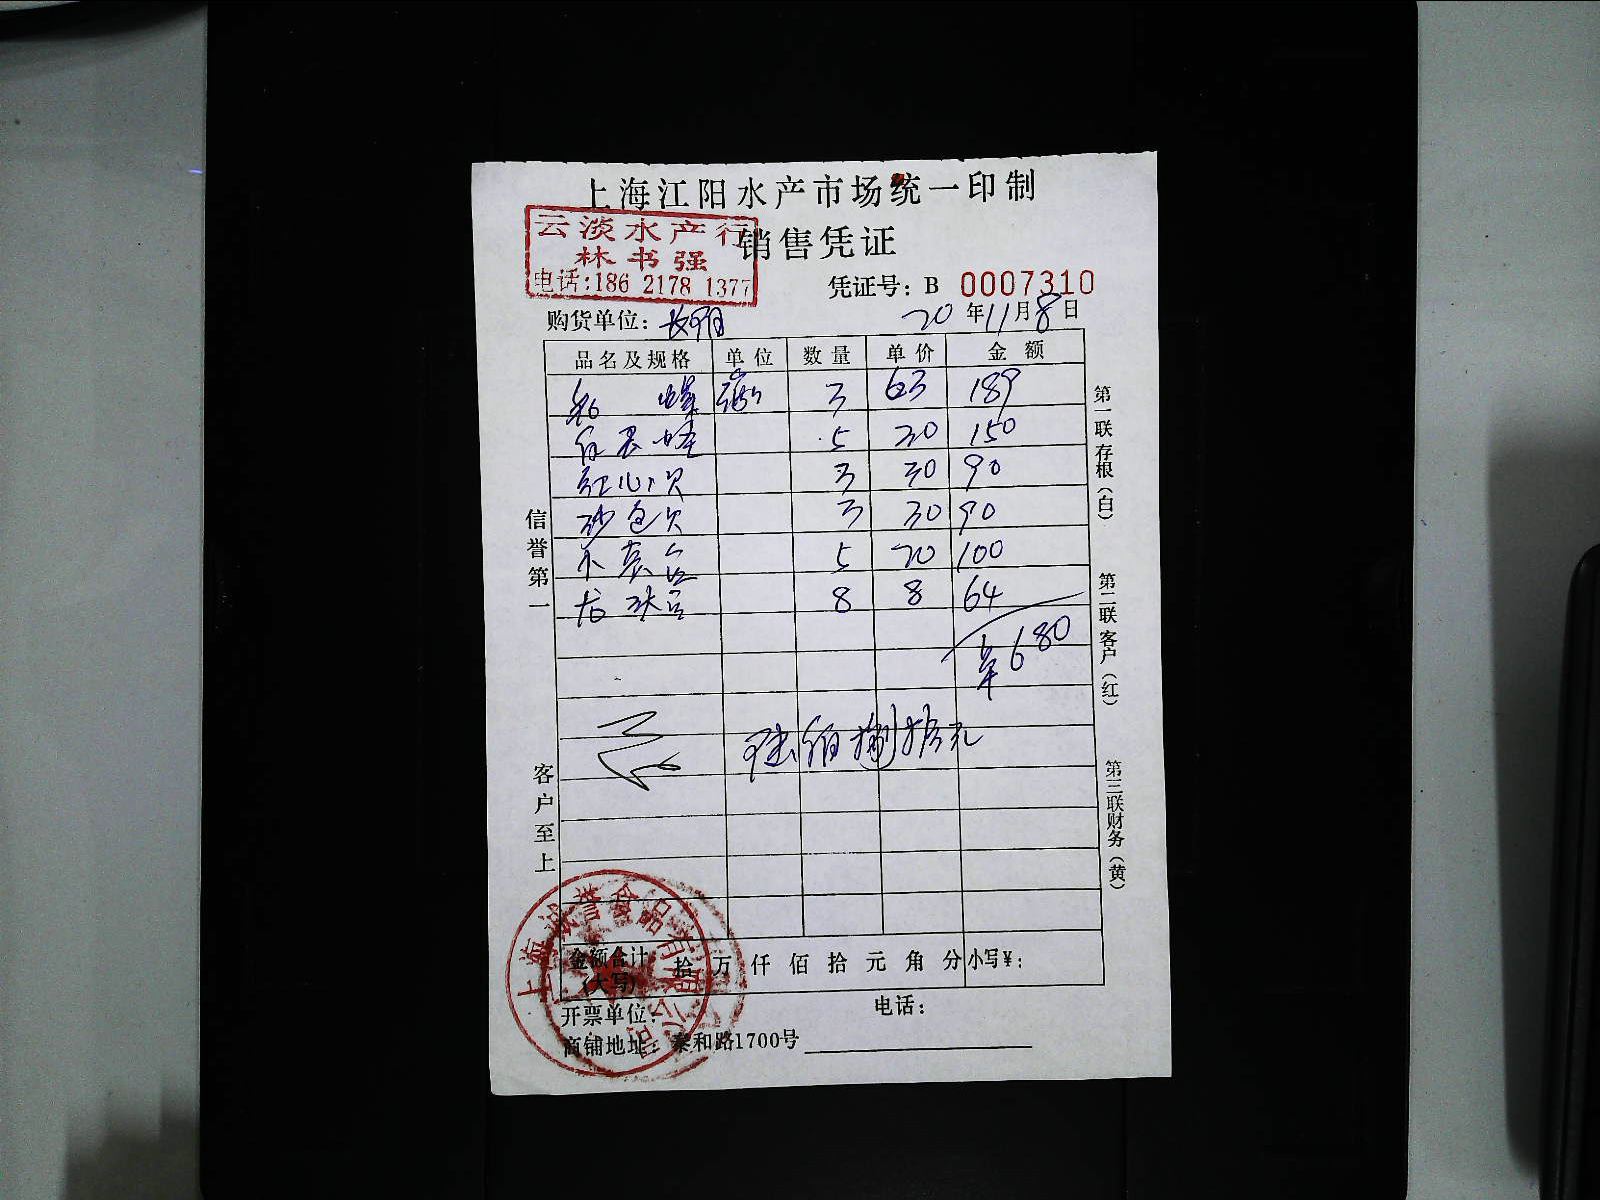 上海江阳水产市场统一印制
云淡水产行
林书强
电话:186 2178 1377
销售凭证
凭证号: B 0007310
购货单位:
20 年 11 月 8 日
品名及规格 单位 数量 单价 金额
3 63 189
5 30 150
红心贝 3 30 90
砂包贝 3 30 90
5 20 100
8 8 64
¥680
陆佰捌拾元
信誉第一
客户至上
第一联存根(白)
第二联客户(红)
第三联财务(黄)
上海诚誉食品有限公司
金额合计(大写) 拾 万 仟 佰 拾 元 角 分 小写¥:
开票单位: 电话:
商铺地址: 泰和路1700号